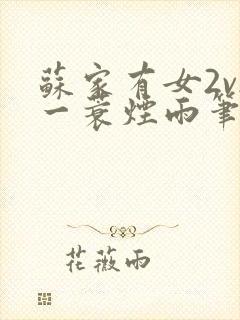 蘇家有女2v
一蓑煙雨筆
花薇雨